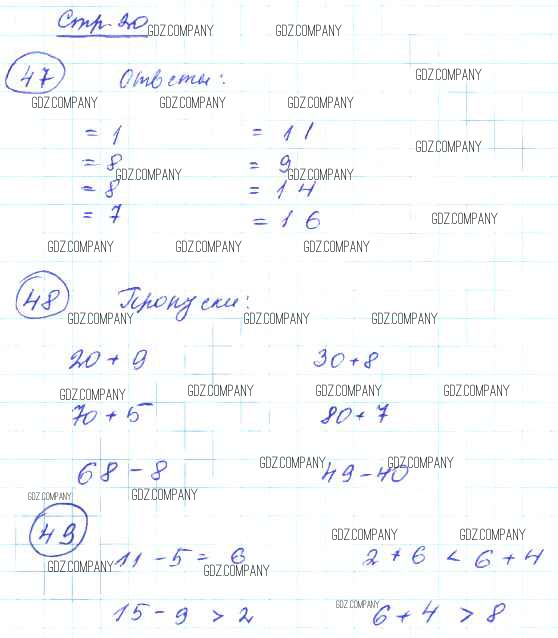 Стр. 20
GDZ.COMPANY GDZ.COMPANY
47 Ответы: GDZ.COMPANY
GDZ.COMPANY GDZ.COMPANY GDZ.COMPANY
= 1 = 11
GDZ.COMPANY
= 8 = 9
GDZ.COMPANY GDZ.COMPANY
= 8 = 14
= 7 = 16 GDZ.COMPANY
GDZ.COMPANY GDZ.COMPANY GDZ.COMPANY
48 Пропуски:
GDZ.COMPANY GDZ.COMPANY GDZ.COMPANY
20 + 9 30 + 8
GDZ.COMPANY GDZ.COMPANY GDZ.COMPANY
70 + 5 80 + 7
GDZ.COMPANY GDZ.COMPANY
68 - 8 49 - 40
GDZ.COMPANY GDZ.COMPANY
49 GDZ.COMPANY GDZ.COMPANY
11 - 5 = 6 2 + 6 < 6 + 4
GDZ.COMPANY GDZ.COMPANY
GDZ.COMPANY
15 - 9 > 2 6 + 4 > 8